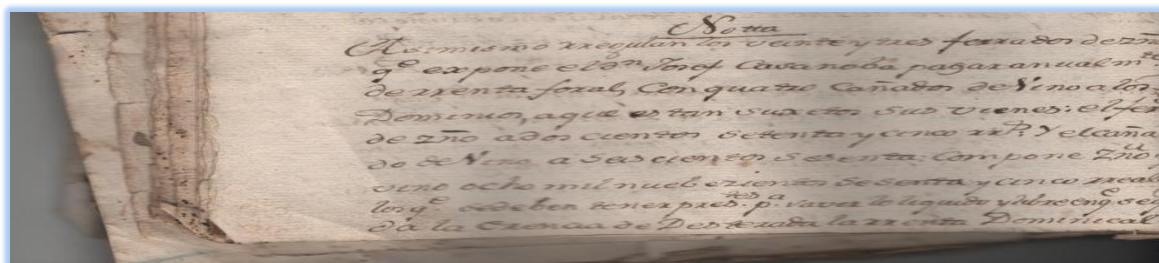 Notta
Asimismo rregulan los veinte y tres ferrados de zño
qe. expone el Dn. Josef Casanoba pagar anualmte
de rrenta foral, Con quatro Cañados de Vino a los
Dominios, a que estan suxetos sus vienes: el fer
de zño a dos cientos setenta y cinco rrs. Y el caña
do de Vino a seis cientos sesenta: Compone Zño y
vino ocho mil nuebecientos sesenta y cinco rreal
los qe. se deben tener presentes pa. saver lo liquido y libre en qe. se q
da la Erencia de Desterada la rrenta Dominical